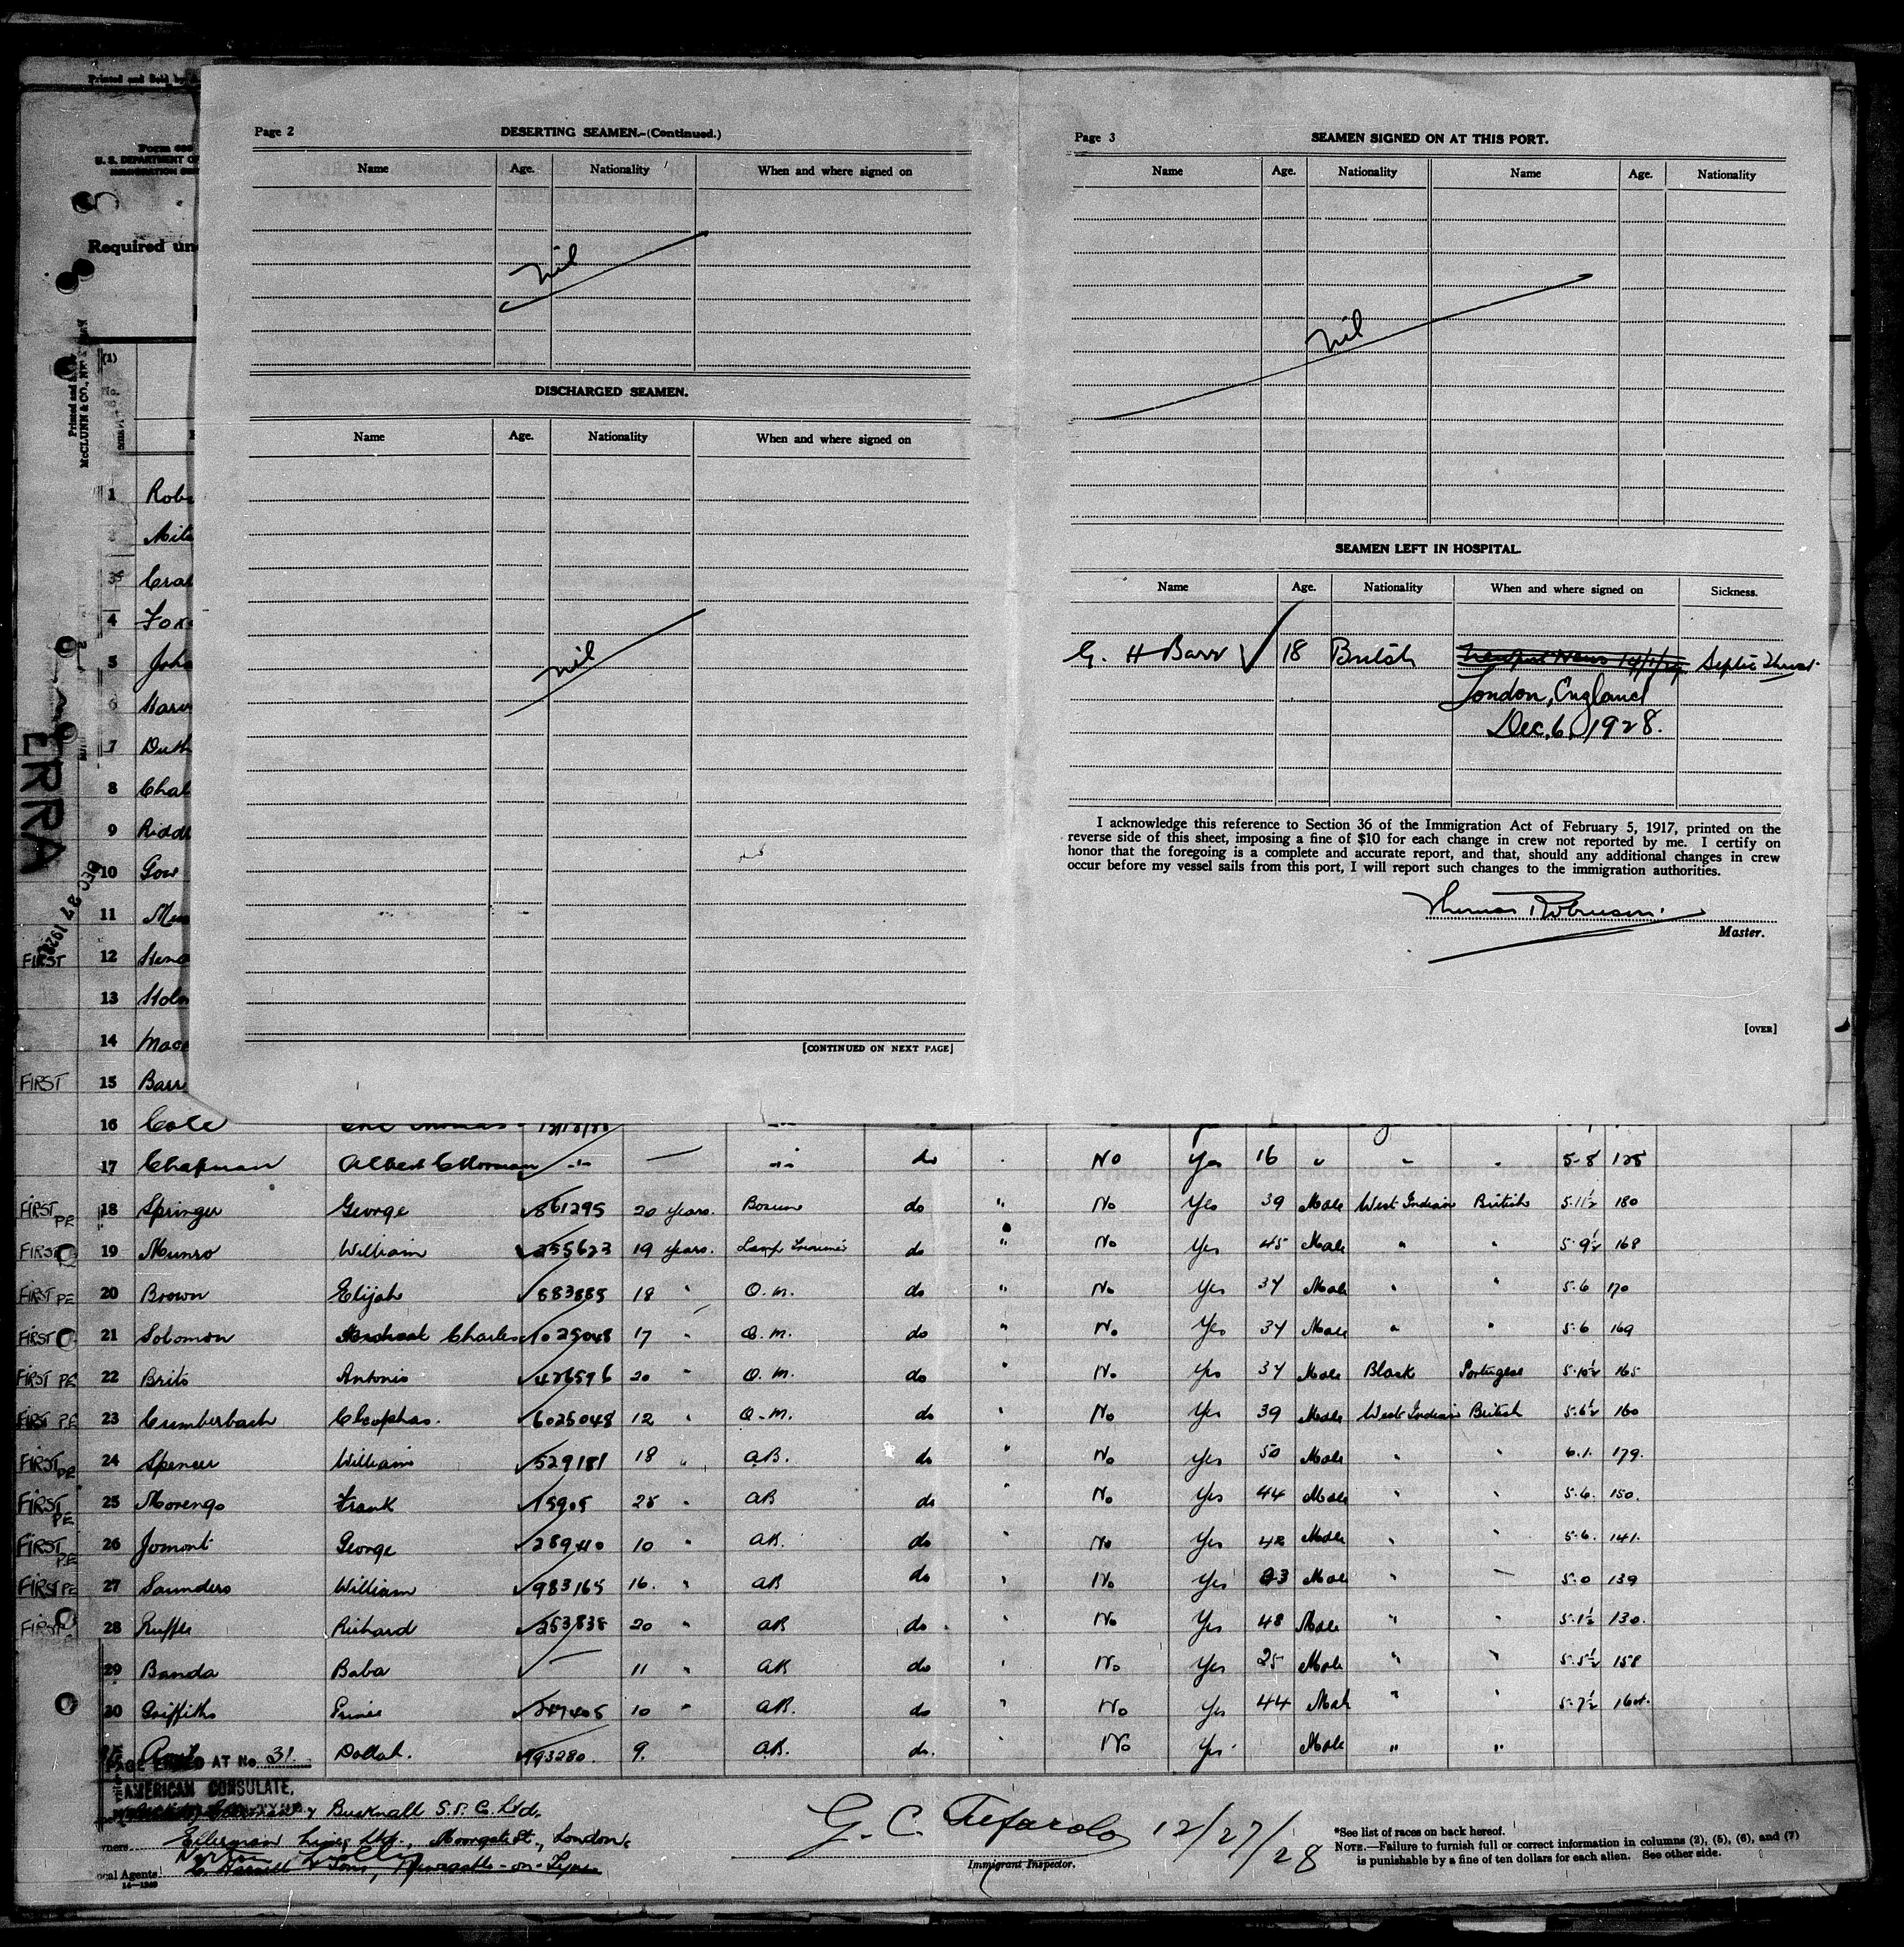 Printed and Sold by
Form 680
U. S. DEPARTMENT OF
IMMIGRATION SER
Required un
Printed and
McCLUNN & CO., NE
(1)
No.
ERRA
DEC 27 1928
Page 2
DESERTING SEAMEN.-(Continued.)
Name Age. Nationality When and where signed on
nil
DISCHARGED SEAMEN.
Name Age. Nationality When and where signed on
nil
[CONTINUED ON NEXT PAGE]
Page 3
SEAMEN SIGNED ON AT THIS PORT.
Name Age. Nationality Name Age. Nationality
nil
SEAMEN LEFT IN HOSPITAL.
Name Age. Nationality When and where signed on Sickness.
G. H Barr 18 British Newport News Septic Throat
London, England
Dec. 6, 1928.
I acknowledge this reference to Section 36 of the Immigration Act of February 5, 1917, printed on the
reverse side of this sheet, imposing a fine of $10 for each change in crew not reported by me. I certify on
honor that the foregoing is a complete and accurate report, and that, should any additional changes in crew
occur before my vessel sails from this port, I will report such changes to the immigration authorities.
Thomas Robinson.
Master.
[OVER]
1 Robi
2
3
4 Fox
5 Joh
6
7 Duth
8 Chal
9 Riddl
10 Gow
11
FIRST 12
13 Holm
14 Mac
FIRST 15 Barr
16 Cole
17 Chapman Albert C Norman do No Yes 16 " " " 5-8 125
FIRST PE 18 Springer George 861295 20 years. Bosun do " No Yes 39 Male West Indian British 5-11½ 180
FIRST 19 Munro William 255623 19 years. Lamp Trimmer do " No Yes 45 Male " " 5-9½ 168
FIRST PE 20 Brown Elijah 883885 18 " Q.M. do " No Yes 34 Male " " 5-6 170
FIRST 21 Solomon Charles 1025048 17 " Q.M. do " No Yes 34 Male " " 5-6 169
FIRST PE 22 Brito Antonio 426596 20 " Q.M. do " No Yes 34 Male Black Portugese 5-10½ 165
FIRST PE 23 Cumberbach Cleophas. 6025048 12 " Q.M. do " No Yes 39 Male West Indian British 5-6½ 160
FIRST PE 24 Spencer William 529181 18 " A.B. do " No Yes 50 Male " " 6.1. 179.
FIRST PE 25 Morengo Frank 15905 25 " AB do " No Yes 44 Male " " 5.6. 150.
FIRST PE 26 Jomont George 289410 10 " AB. do " No Yes 42 Male " " 5-6. 141.
FIRST PE 27 Saunders William 983165 16. " AB do " No Yes 23 Male " " 5.0 139
FIRST 28 Ruffle Richard 253838 20 " AB do " No Yes 48 Male " " 5-1½ 130.
29 Banda Baba 11 " AB do " No Yes 25 Male " " 5-5½ 158
30 Griffiths Prince 247405 10 " AB. do " No Yes 44 Male " " 5-7½ 164.
Dollah. 993280. 9. AB. do. No Yes Male " "
PAGE ENDED AT No. 31.
AMERICAN CONSULATE,
Bucknall S.S. Co. Ltd.
wners Ellerman Lines Ltd., Moorgate St., London.
Norton Lilly
ocal Agents & Sons, Newcastle-on-Tyne
14—1249
G. C. Tefarolo 12/27/28
Immigrant Inspector.
*See list of races on back hereof.
NOTE.—Failure to furnish full or correct information in columns (2), (5), (6), and (7)
is punishable by a fine of ten dollars for each alien. See other side.